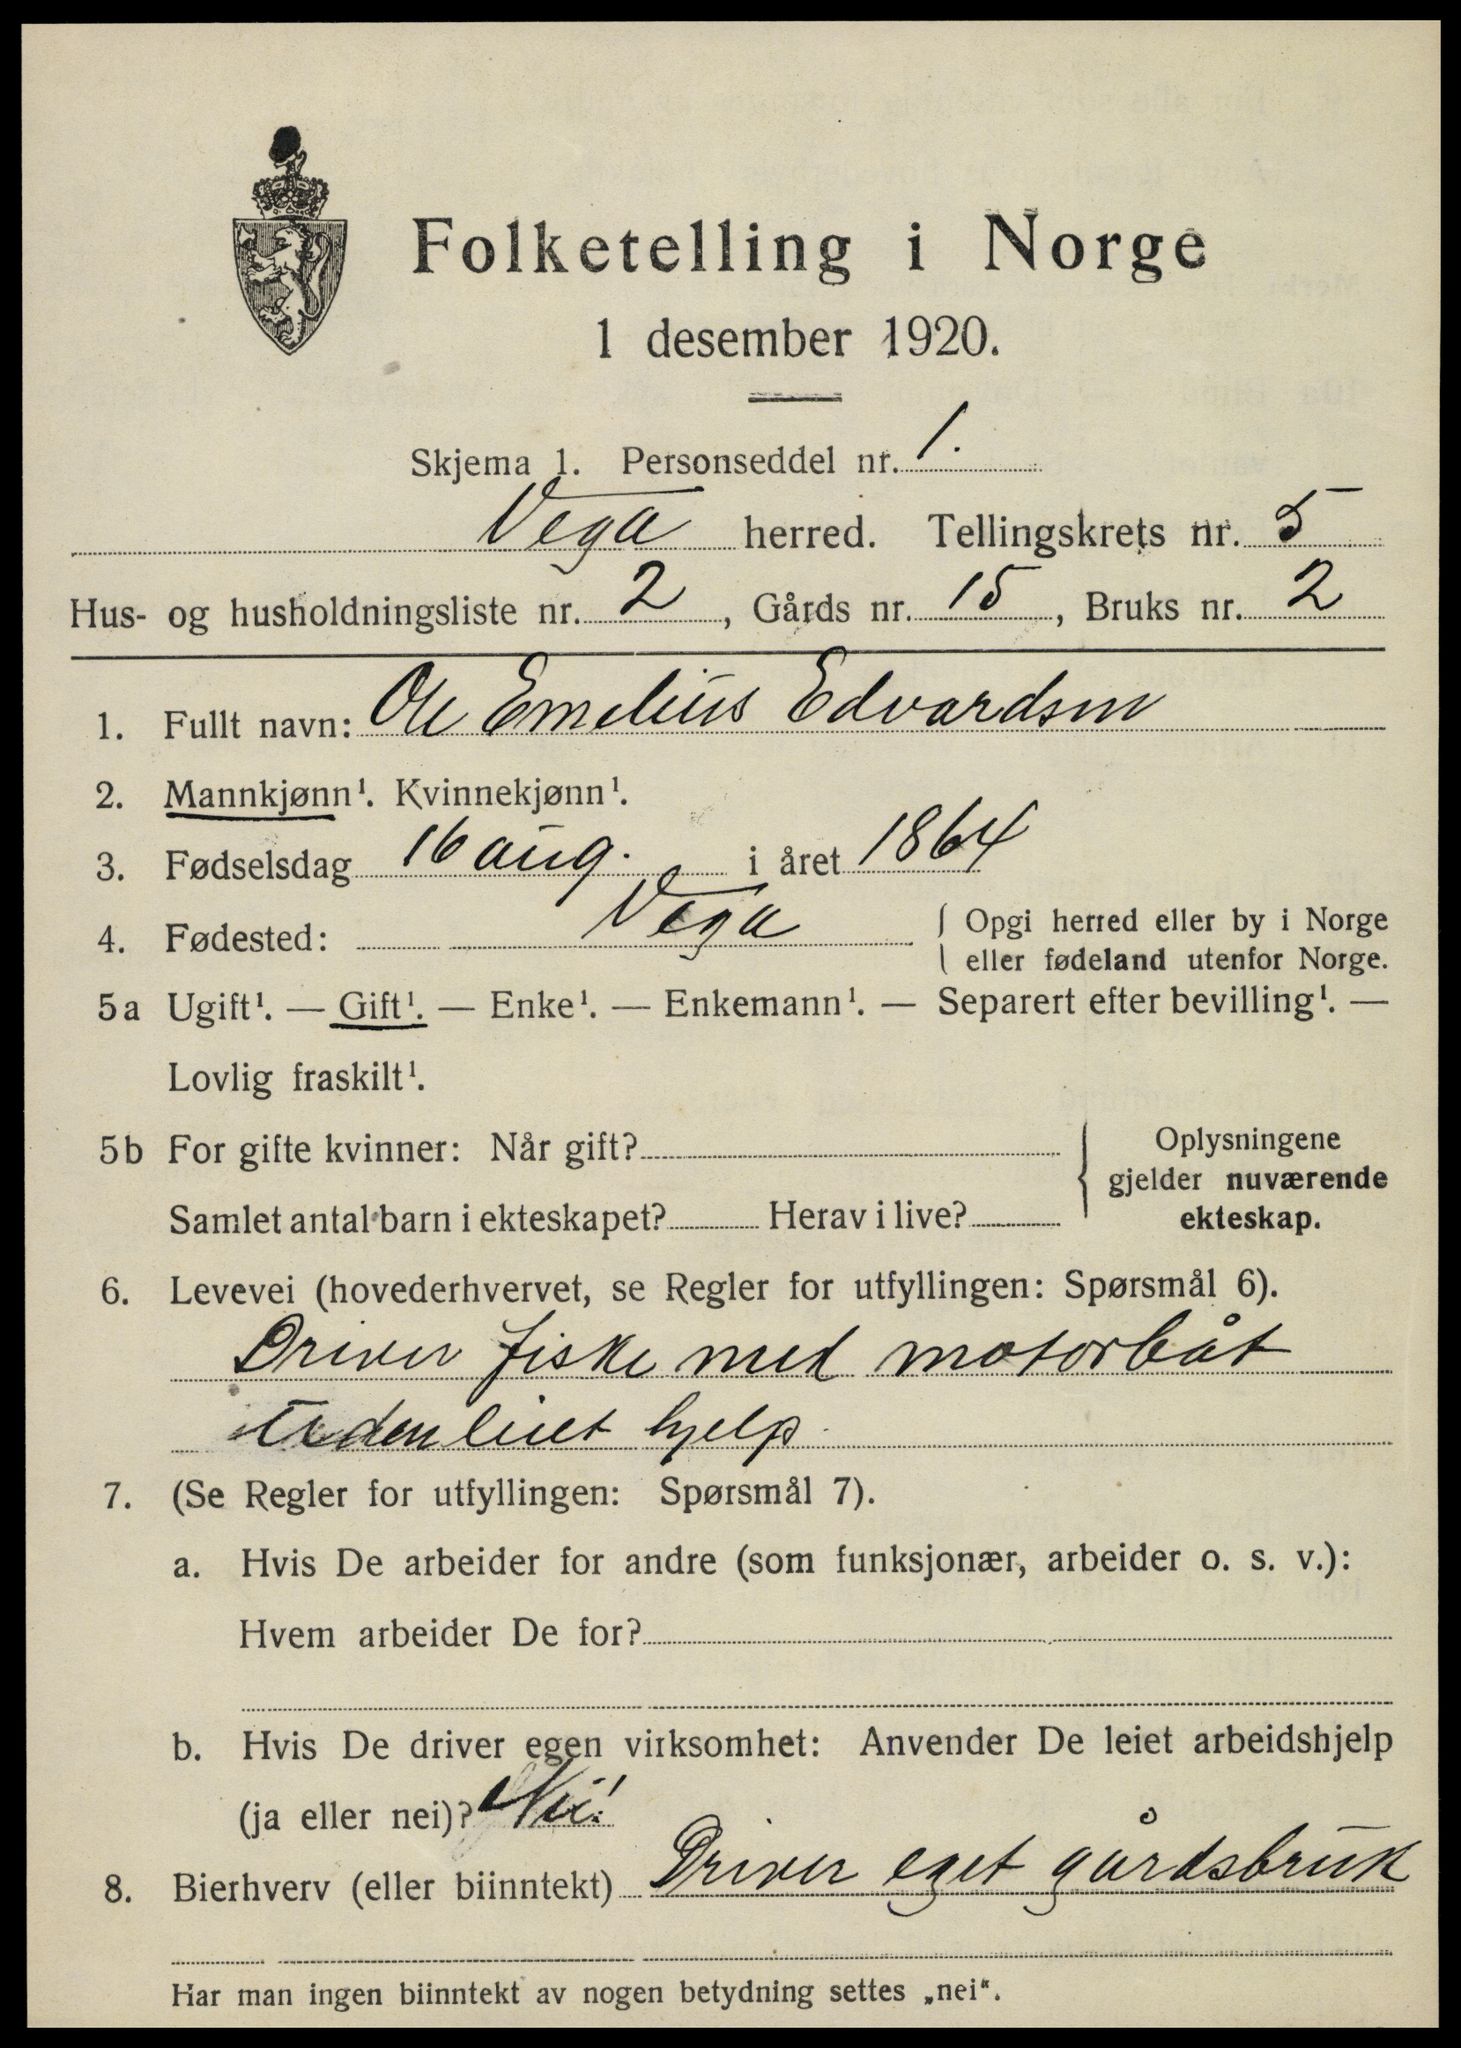 Folketelling i Norge
1 desember 1920.
Skjema 1. Personseddel nr. 1.
Vega herred. Tellingskrets nr. 5
Hus- og husholdningsliste nr. 2, Gårds nr. 15, Bruks nr. 2
1. Fullt navn: Ole Emelius Edvardsen
2. Mannkjønn¹. Kvinnekjønn¹.
3. Fødselsdag 16 aug. i året 1864
4. Fødested: Vega { Opgi herred eller by i Norge
eller fødeland utenfor Norge.
5a Ugift¹. — Gift¹. — Enke¹. — Enkemann¹. — Separert efter bevilling¹. —
Lovlig fraskilt¹.
5b For gifte kvinner: Når gift?
Samlet antal barn i ekteskapet? Herav i live?
{ Oplysningene
gjelder nuværende
ekteskap.
6. Levevei (hovederhvervet, se Regler for utfyllingen: Spørsmål 6).
Driver fiske med motorbåt
uden leiet hjelp.
7. (Se Regler for utfyllingen: Spørsmål 7).
a. Hvis De arbeider for andre (som funksjonær, arbeider o. s. v.):
Hvem arbeider De for?
b. Hvis De driver egen virksomhet: Anvender De leiet arbeidshjelp
(ja eller nei)? Nei!
8. Bierhverv (eller biinntekt) Driver eget gårdsbruk
Har man ingen biinntekt av nogen betydning settes „nei“.